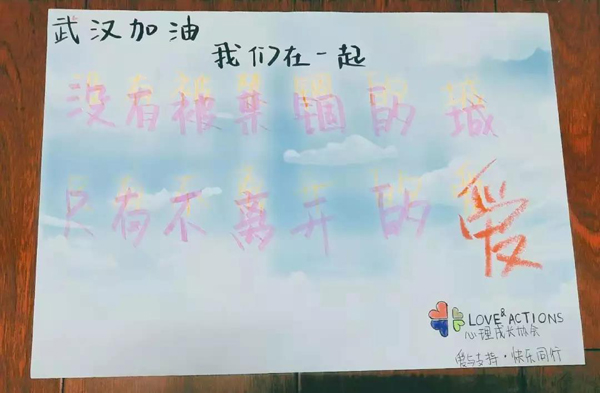 武汉加油
我们在一起
没有被禁锢的城
只有不离开的爱
LOVE & ACTIONS
心理成长协会
爱与支持·快乐同行